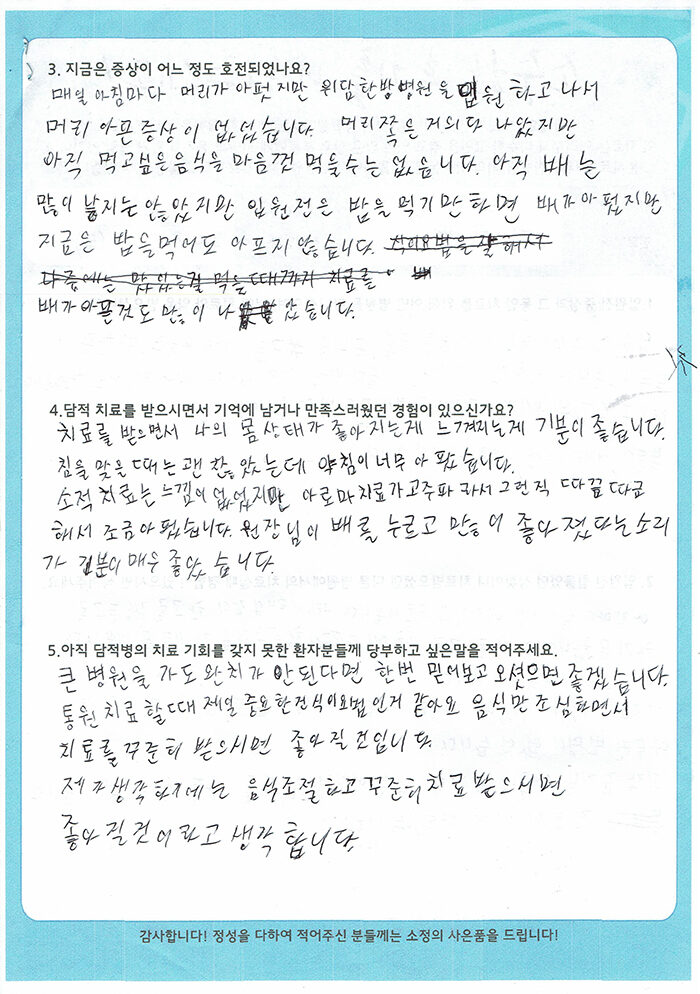 3. 지금은 증상이 어느 정도 호전되었나요?
매일 아침마다 머리가 아펏지만 위담한방병원을 입원 하고 나서
머리 아픈증상이 없었습니다. 머리쪽은 거의다 나았지만
아직 먹고싶은음식을 마음껏 먹을수는 없습니다. 아직 배는
많이 낳지는 않았지만 입원전은 밥을 먹기만하면 배가아펐지만
지금은 밥을먹어도 아프지 않습니다. 식이요법을 잘 해서
다음에는 맛있는걸 먹을때까지 치료를
배가아픈것도 많이 나았습니다.
4.담적 치료를 받으시면서 기억에 남거나 만족스러웠던 경험이 있으신가요?
치료를 받으면서 나의 몸상태가 좋아지는게 느껴지는게 기분이 좋습니다.
침을 맞을때는 괜찮았는데 약침이너무 아펐습니다.
소적치료는 느낌이 없었지만 아로마치료가고주파 라서 그런직 따끔따끔
해서 조금아펐습니다. 원장님이 배를 누르고 많이 좋아졌다는소리
가 기분이매우 좋았습니다.
5.아직 담적병의 치료 기회를 갖지 못한 환자분들께 당부하고 싶은말을 적어주세요.
큰 병원을 가도 완치가 안된다면 한번 믿어보고 오셨으면좋겠습니다.
통원치료할때 제일 중요한건식이요법인거 같아요 음식만조심하면서
치료를꾸준히 받으시면 좋아질것입니다.
제가생각하기에는 음식조절하고꾸준히치료받으시면
좋아질것이라고 생각합니다.
감사합니다! 정성을 다하여 적어주신 분들께는 소정의 사은품을 드립니다!